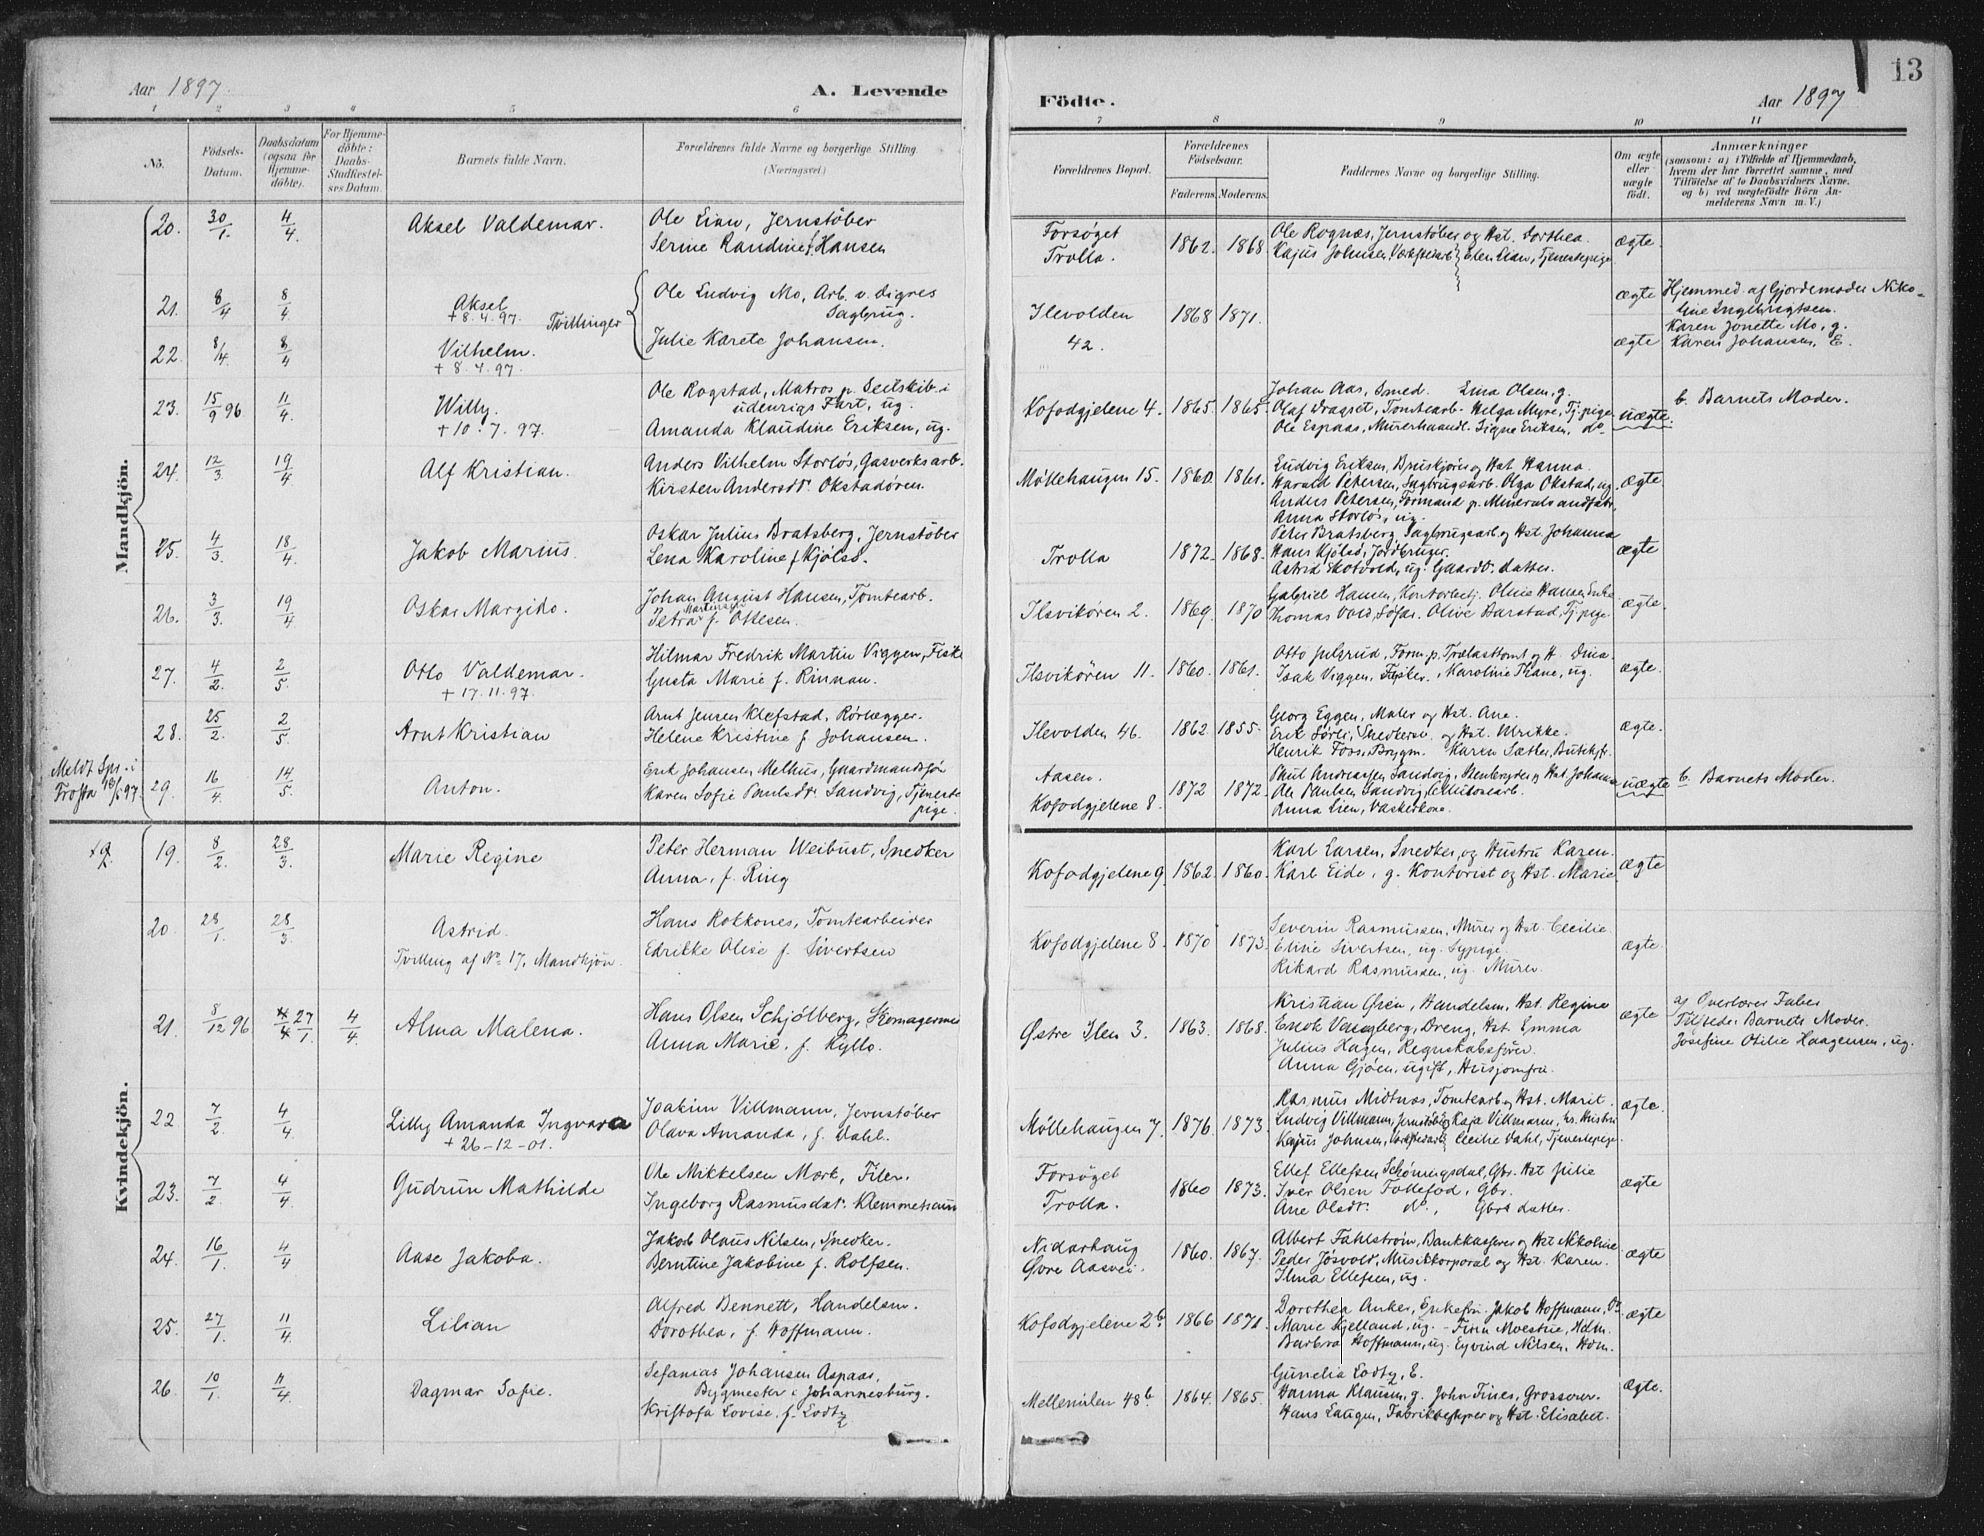 Aar 1897.
A. Levende
Födte.
Aar 1897
13
1 2 3 4 5 6 7 8 9 10 11
Nö.
Födsels-Datum.
Daabsdatum (ogsaa for Hjemme-döbte).
For Hjemme-döbte: Daabs-Stadfæstel-ses Datum.
Barnets fulde Navn.
Forældrenes fulde Navne og borgerlige Stilling. (Næringsvei)
Forældrenes Bopæl.
Forældrenes Födselsaar.
Faderens. Moderens.
Faddernes Navne og borgerlige Stilling.
Om ægte eller uægte födt.
Anmærkninger
(saasom: a) i Tilfælde af Hjemmedaab, hvem der har forrettet samme, med Tilföielse af to Daabsvidners Navne, og b) ved uægtefödte Börn An-melderens Navn m. V.)
Mandkjön.
20. 30/1. 4/4 Aksel Valdemar. Ole Lian, Jernstøber
Serine Randine f. Hansen
Forsøget
Trolla. 1862. 1868. Ole Rognæs, Jernstøber og Hst. Dorthea.
Kajus Johnsen, Værkstedarb. Elen Lian, Tjenestepige ægte.
21. 8/4 8/4 Aksel
+ 8.4.97. Tvillinger
Ole Ludvig Mo, Arb. v. Digres
Sagbrug.
Julie Karete Johansen.
Ilevolden
42. 1868 1871. ægte Hjemmed. af Gjordemoder Niko-
line Ingebrigtsen.
22. 8/4 8/4 Vilhelm.
+ 8.4.97. ægte Karen Jonette Mo, g.
Karen Johansen, E.
23. 15/9 96 11/4. Willy.
+ 10.7.97. Ole Rogstad, Matros p. Seilskib i
udenrigs Fart, ug.
Amanda Klaudine Eriksen, ug.
Kofodgjelene 4. 1865. 1865. Johan Aas, Smed. Lina Olsen, g.
Olaf Dragset, Tomtearb. Helga Myre, Tj.pige
Ole Espaas, Murerhaandl. Signe Eriksen, do uægte. b. Barnets Moder.
24. 12/3. 19/4 Alf Kristian. Anders Vilhelm Storløs, Gasverksarb.
Kirsten Andersdr. Okstadøren.
Møllehaugen 15. 1860. 1861. Ludvig Eriksen, Bruskjører og Hst. Hanna.
Harald Petersen, Sagbrugsarb. Olga Okstad, ug.
Anders Petersen, Formand p. Mineralvandfabr.
Anna Storløs, ug. ægte.
25. 4/3 18/4 Jakob Marius. Oskar Julius Bratsberg, Jernstøber
Lena Karoline f. Kjølsø.
Trolla 1872. 1868. Peter Bratsberg, Sagbrugsarb. og Hst. Johanna
Hans Kjølsø, Jordbruger.
Astrid Skotvold, ug. Gaardbr. datter. ægte
26. 3/3. 19/4 Oskar Margido. Johan August Hansen, Tomtearb.
Petra Martensen f. Ottesen.
Ilsvikören 2. 1869. 1870 Gabriel Hansen, Kontorbetj. Oline Hansen, Enke
Thomas Vold, Søfar. Olive Barstad, Tj.pige ægte.
27. 4/2. 2/5. Otto Valdemar.
+ 17.11.97. Hilmar Fredrik Martin Viggen, Fisk
Gusta Marie f. Rinnan.
Ilsvikören 11. 1860. 1861. Otto Julgrud, Form. p. Trælasttomt og H. Dina.
Isak Viggen, Fisker. Karoline Thane, ug. ægte.
28. 25/2. 2/5. Arnt Kristian Arnt Jensen Klefstad, Rørlægger.
Helene Kristine f. Johansen.
Ilevolden 46. 1862 1855. Georg Eggen, Maler og Hst. Ane.
Erik Sørli, Snedker og Hst. Ulrikke.
Henrik Foss, Brygm. Karen Sætler, Butikjf. ægte.
Meldt Spr. i
Frosta 18/6 97.
29. 16/4. 14/5. Anton. Erik Johansen Melhus, Gaardmandssøn
Karen Sofie Paulsdr. Sandvig, Tjeneste
pige.
Aasen.
Kofodgjelene 8. 1872 1872. Paul Andreassen Sandvig, Stenbryder og Hst. Johanna
Ole Paulsen Sandvig, Cellulosearb.
Anna Lien, Vaskerkone. uægte b. Barnets Moder.
Kvindekjön.
19. 8/2. 28/3. Marie Regine Peter Herman Weibust, Snedker
Anna, f. Ring
Kofodgjelene 9. 1862 1860. Karl Larsen, Snedker, og Hustru Karen.
Karl Eide, g. Kontorist og Hst. Marie. ægte
20. 28/1. 28/3. Astrid.
Tvilling af No 17, Mandkjön. Hans Rokkones, Tomtearbeider
Edrikke Olise f. Sivertsen
Kofodgjelene 8. 1870 1873. Severin Rasmussen, Murer og Hst. Cecilie.
Eline Sivertsen, ug. Sypige.
Rikard Rasmussen, ug. Murer. ægte.
21. 8/12 96 4/4 27/1. 4/4 Alma Malena. Hans Olsen Schjølberg, Skomagerme
Anna Marie, f. Kyllo.
Østre Ilen 3. 1863. 1868. Kristian Øien, Handelsm. Hst. Regine
Enok Vangberg, Dreng, Hst. Emma
Julius Hagen, Regnskabsfører.
Anna Gjøen, ugift, Husjomfru. ægte a) Overlærer Faber
Tilstede: Barnets Moder.
Josefine Otilie Haagensen, ug.
22. 7/2. 4/4. Lilly Amanda Ingvara
+ 26-12-01. Joakim Villmann, Jernstøber
Olava Amanda, f. Dahl.
Møllehaugen 7. 1876. 1873. Rasmus Midtnes, Tomtearb. og Hst. Marit.
Ludvig Villmann, Jernstøber, Kaja Villmann, hs. Hustru
Kajus Johnsen, Værkstedarb. Cecilie Dahl, Tjenestepige. ægte.
23. 7/2. 4/4. Gudrun Mathilde Ole Mikkelsen Mørk, Filer.
Ingeborg Rasmusdr. Klemmetsaun
Forsøget
Trolla. 1860 1873. Ellef Ellefsen Schøningsdal, Gbr. Hst. Julie
Iver Olsen Follefod, Gbr.
Ane Olsdr. do, Gbrs datter. ægte
24. 16/1. 4/4 Aase Jakoba. Jakob Olaus Nilsen, Snedker.
Berntine Jakobine f. Rolfsen.
Nidarhaug
Øvre Aasvei. 1860. 1867. Albert Fahlstrøm, Bankkasserer og Hst. Nikoline
Peder Jøsvold, Musikkorporal og Hst. Karen.
Ilma Ellefsen, ug. ægte
25. 27/1. 11/4. Lilian Alfred Bennett, Handelsm.
Dorothea, f. Hoffmann.
Kofodgjelene 2b. 1866 1871. Dorothea Anker, Enkefru. Jakob Hoffmann, Dr.
Marie Kjelland, ug. - Finn Moestue, Hdlm.
Barbra Hoffmann, ug. Eyvind Nilsen, Hdm. ægte
26. 10/1. 11/4. Dagmar Sofie. Sefanias Johansen Aspaas,
Bygmester i Johannesburg.
Kristofa Lovise, f. Lodtz
Mellemilen 48b 1864. 1865. Gunelia Lodtz, E.
Hanna Klausen, g. John Fines, Grosserer.
Hans Langen, Fabrikbestyrer og Hst. Elisabet. ægte.